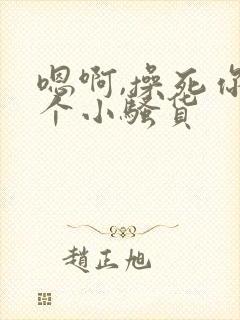 嗯啊,操死你
个小骚货
趙正旭